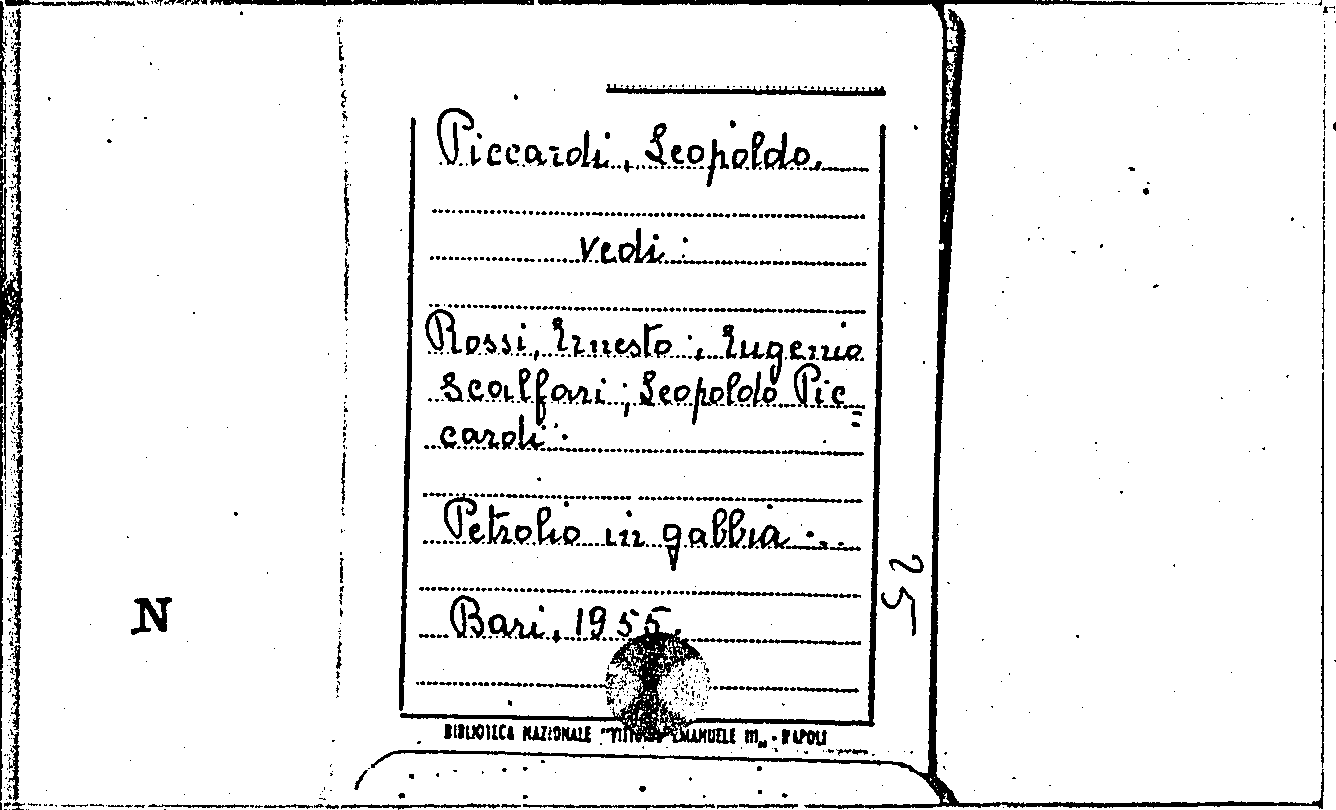 Piccardi, Leopoldo.
vedi :
Rossi, Ernesto ; Eugenio
Scalfari ; Leopoldo Pic=
cardi :
Petrolio in gabbia ...
Bari, 1955.
BIBLIOTECA NAZIONALE "VITTORIO EMANUELE III" - NAPOLI
N
25